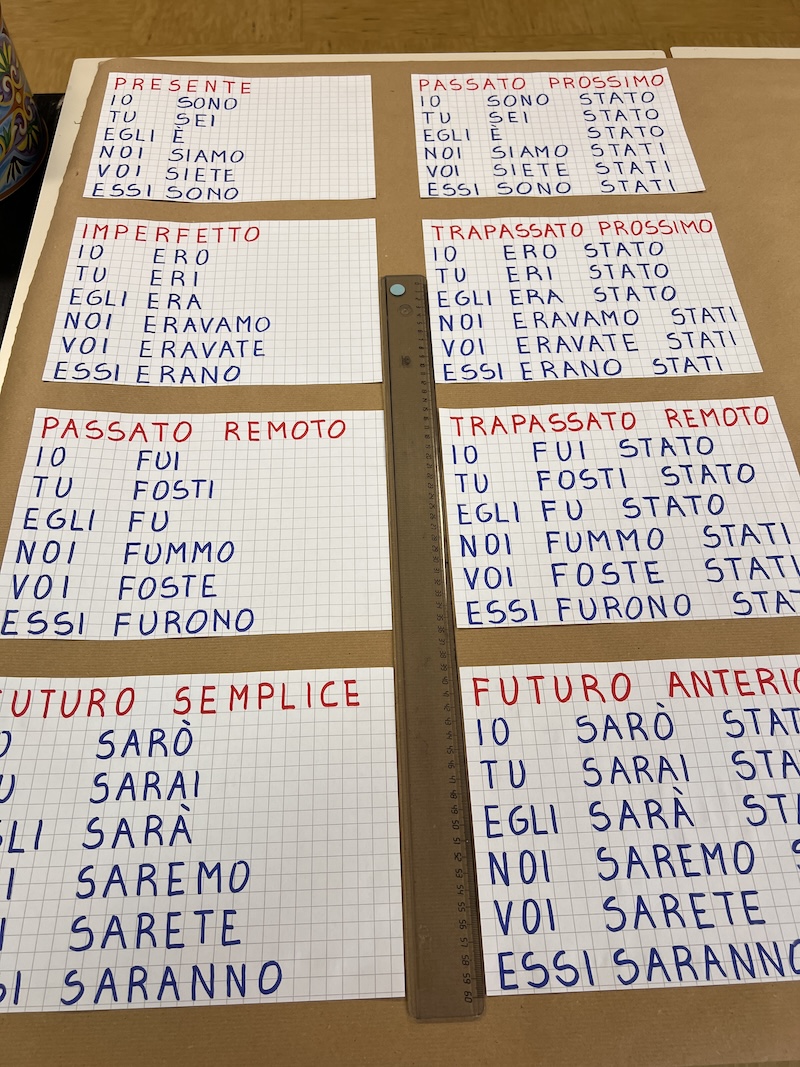 PRESENTE
IO SONO
TU SEI
EGLI È
NOI SIAMO
VOI SIETE
ESSI SONO
PASSATO PROSSIMO
IO SONO STATO
TU SEI STATO
EGLI È STATO
NOI SIAMO STATI
VOI SIETE STATI
ESSI SONO STATI
IMPERFETTO
IO ERO
TU ERI
EGLI ERA
NOI ERAVAMO
VOI ERAVATE
ESSI ERANO
TRAPASSATO PROSSIMO
IO ERO STATO
TU ERI STATO
EGLI ERA STATO
NOI ERAVAMO STATI
VOI ERAVATE STATI
ESSI ERANO STATI
PASSATO REMOTO
IO FUI
TU FOSTI
EGLI FU
NOI FUMMO
VOI FOSTE
ESSI FURONO
TRAPASSATO REMOTO
IO FUI STATO
TU FOSTI STATO
EGLI FU STATO
NOI FUMMO STATI
VOI FOSTE STATI
ESSI FURONO STAT
FUTURO SEMPLICE
O SARÒ
U SARAI
GLI SARÀ
I SAREMO
I SARETE
SI SARANNO
FUTURO ANTERIO
IO SARÒ STAT
TU SARAI STA
EGLI SARÀ STA
NOI SAREMO S
VOI SARETE
ESSI SARANNO